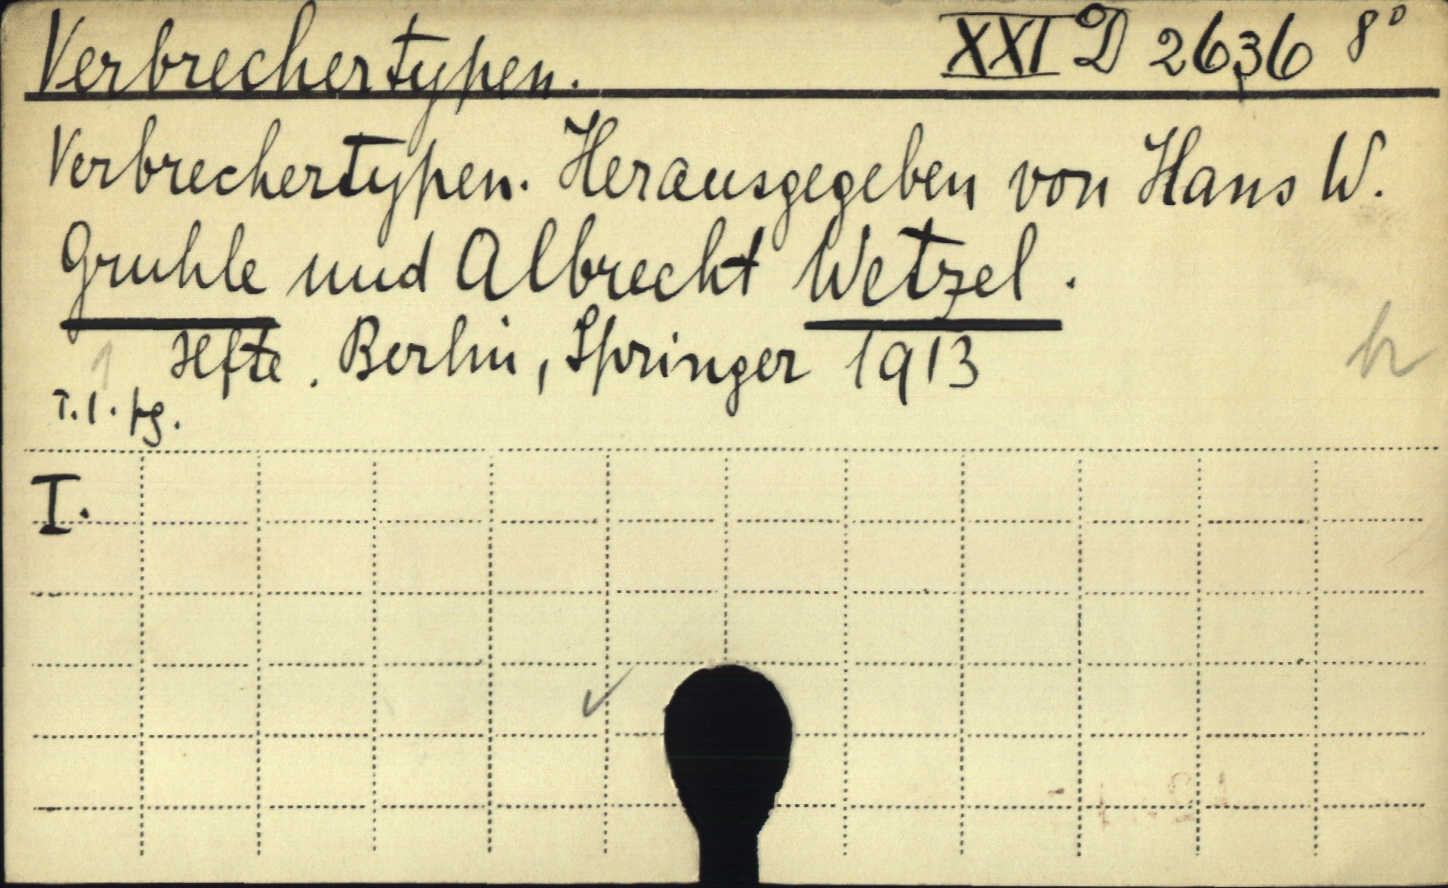 Verbrechertypen. XXI D 2636 8°
Verbrechertypen. Herausgegeben von Hans W.
Gruhle und Albrecht Wetzel.
1 Hefte. Berlin, Springer 1913
T.1. pg.
I.